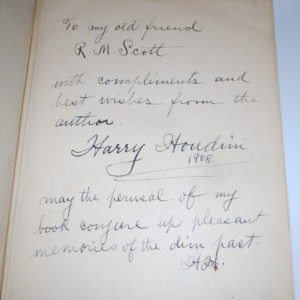 To my old friend
R. M. Scott
with compliments and
best wishes from the
author.
Harry Houdini
1908.
may the perusal of my
book conjure up pleasant
memories of the dim past.
H.H.